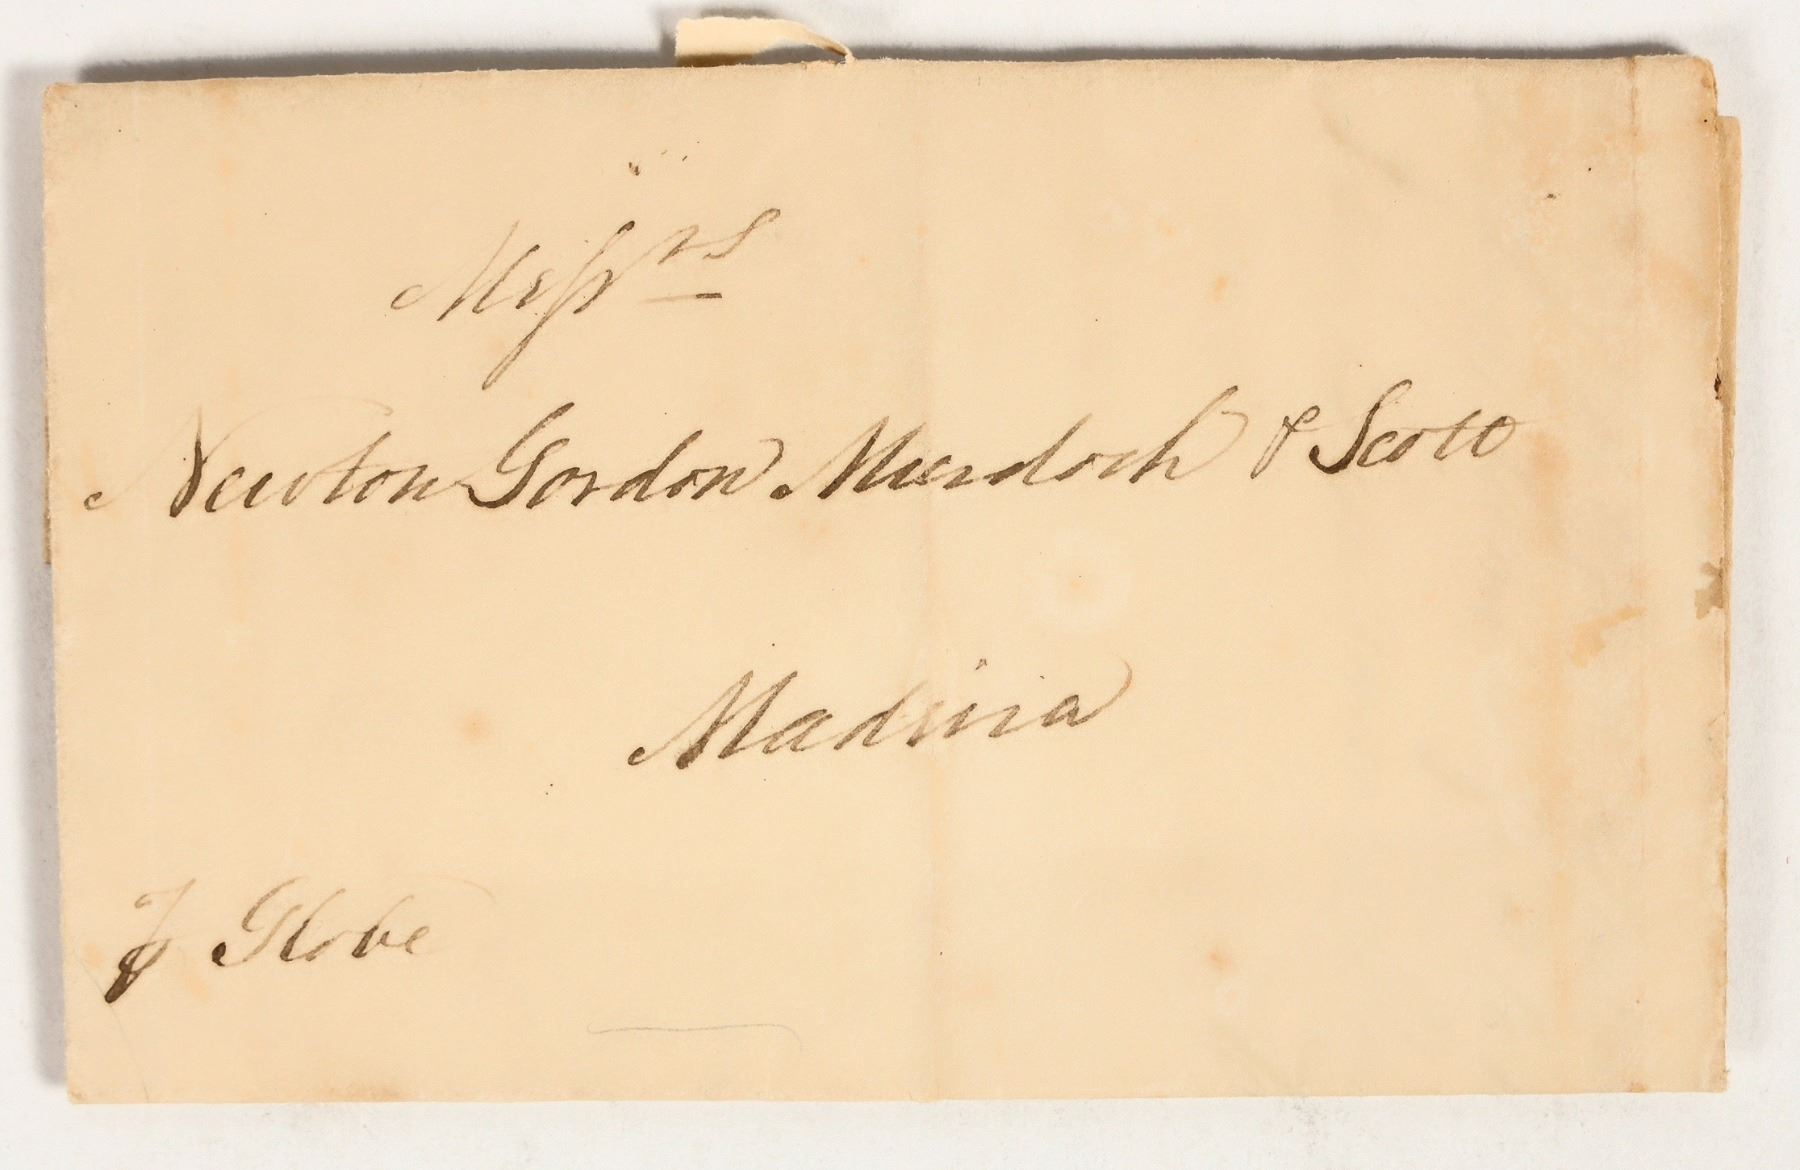 Messrs
Newton Gordon Murdoch & Scott
Madeira
⅌ Globe